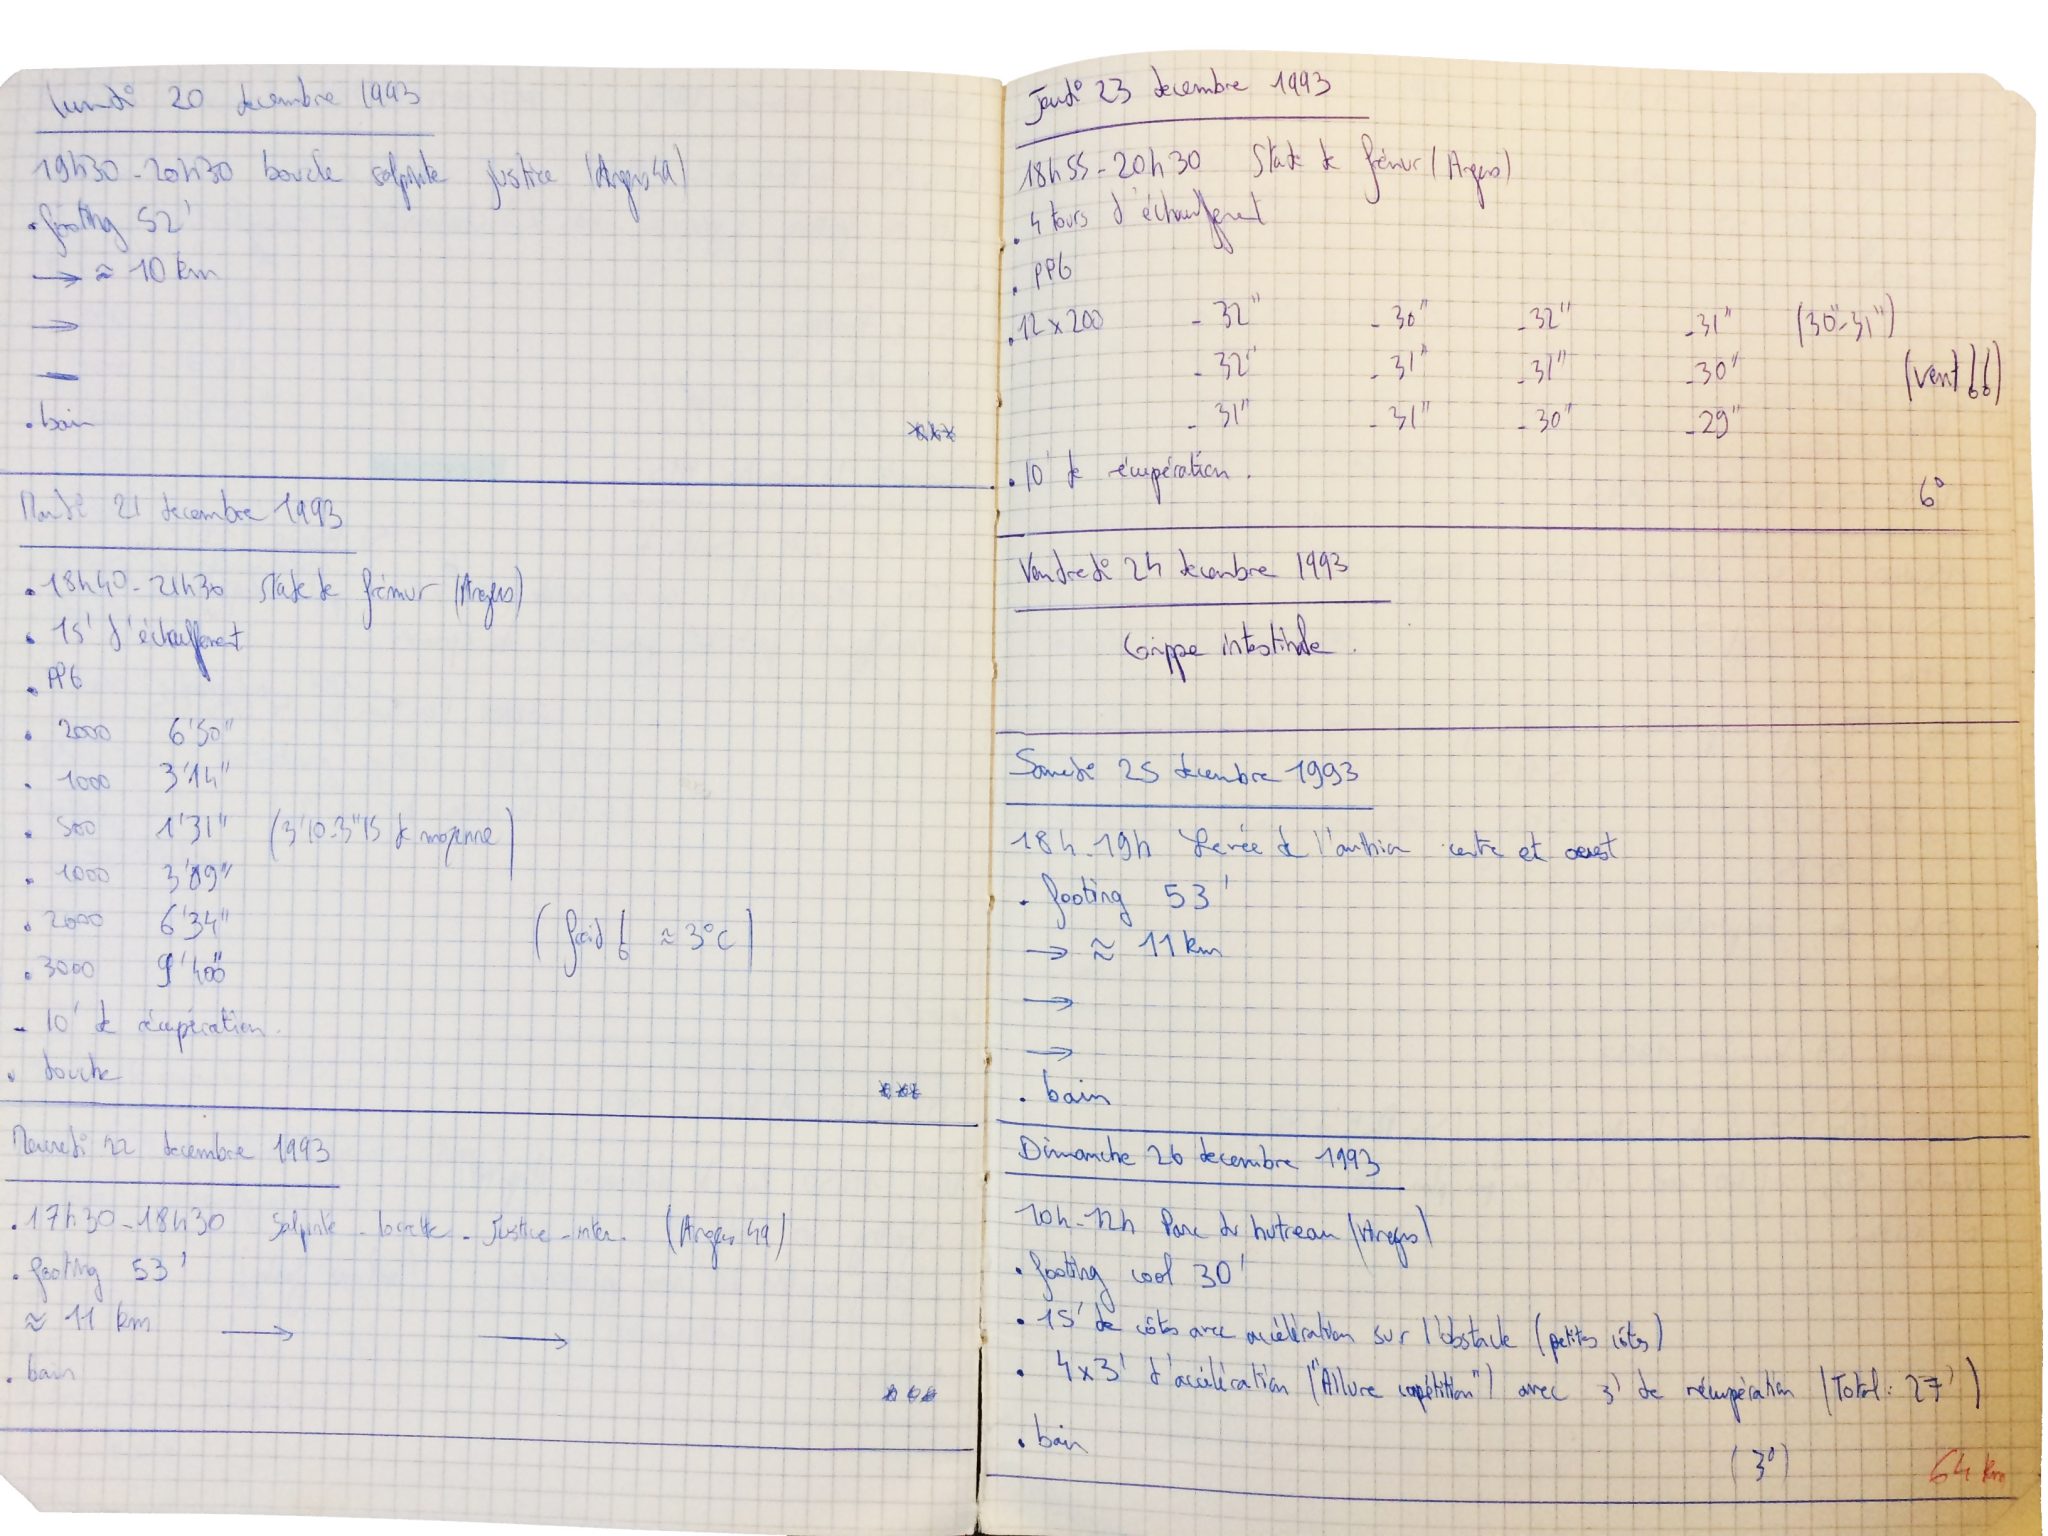 Lundi 20 decembre 1993
19h30-20h30 boucle salpinte justice (Angers 49)
. footing 52'
→ ≈ 10 km
→
–
. bain ***
Mardi 21 decembre 1993
. 18h40-21h30 Stade de frémur (Angers)
. 15' d'échauffement
. PPG
. 2000 6'50"
. 1000 3'14"
. 500 1'31" (3'10-3"15 de moyenne)
. 1000 3'09"
. 2000 6'34" (froid ≈ 3°C)
. 3000 9'40"
- 10' de récupération.
. douche ***
Mercredi 22 decembre 1993
. 17h30-18h30 Salpinte - - Justice - inter. (Angers 49)
. footing 53'
≈ 11 km → →
. bain ***
Jeudi 23 decembre 1993
18h55-20h30 Stade de frémur (Angers)
. 4 tours d'échauffement
. PPG
. 12 x 200 - 32" - 30" - 32" - 31" (30"-31")
- 32" - 31" - 31" - 30" (vent)
- 31" - 31" - 30" - 29"
. 10' de récupération.
6°
Vendredi 24 decembre 1993
Grippe intestinale.
Samedi 25 decembre 1993
18h-19h Levée de l'authion centre et ouest
. footing 53'
→ ≈ 11 km
→
→
. bain
Dimanche 26 decembre 1993
10h-12h Parc du hutreau (Angers)
. footing cool 30'
. 15' de côtes avec accélération sur l'obstacle (petites côtes)
. 4x3' d'accélération ("Allure compétition") avec 3' de récupération (Total: 27')
. bain
(3°) 64 km